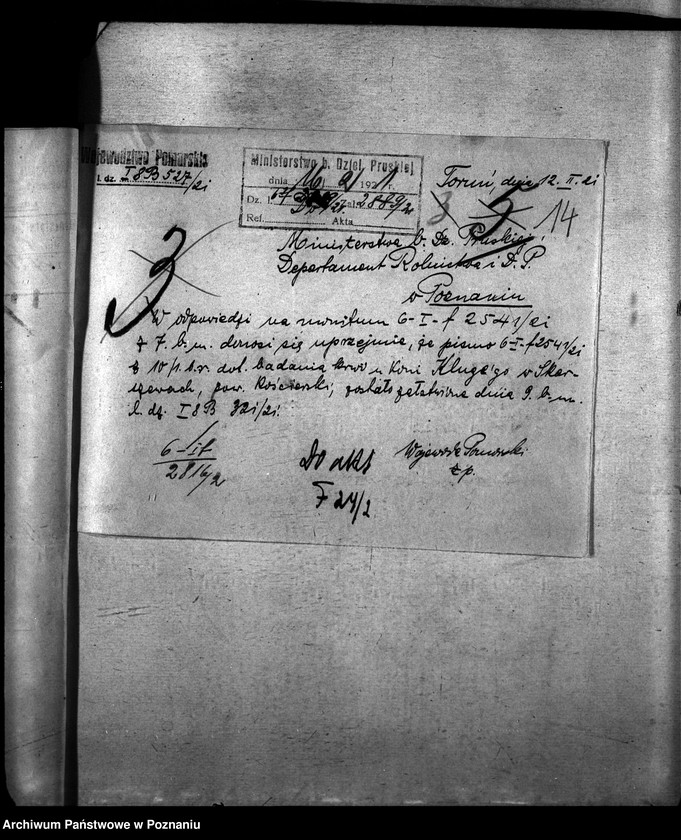 Województwo Pomorskie
l. dz. I 8B 527/21
Ministerstwo b. Dziel. Pruskiej
dnia 16/2 192 1 r.
Dz. zał. 2889/21
Ref. Akta
Toruń, dnia 12. II. 21
3 14
3
Ministerstwo b. Dz. Pruskiej
Departament Rolnictwa i D. P.
w Poznaniu
W odpowiedzi na monitum 6-I-f 2541/21
z 7. b. m. donosi się uprzejmie, że pismo 6-I-f 2541/21
z 10/1. b. r. dot. badania krwi u koni Klugego w Skar-
szewach, pow. Kościerski, zostało załatwione dnia 9. b. m.
l. dz. I 8B 321/21.
6-If
2816/2
Do akt
F 24/2
Wojewoda Pomorski
z p.
Archiwum Państwowe w Poznaniu